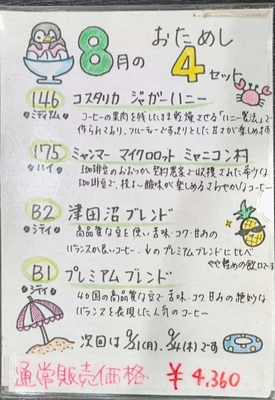 8月の おためし
4セット
146 コスタリカ ジャガーハニー
ミディアム
コーヒーの果肉を残したまま乾燥させる「ハニー製法」で
作られており、フルーティーですっきりとした甘さが楽しめます
175 ミャンマー マイクロロット ミャニコン村
ハイ
珈琲豆の
契約農園で収穫された希少な
珈琲豆で、程よい酸味が楽しめるさわやかなコーヒー
B2 津田沼ブレンド
シティ
高品質な豆を使い苦味・コク・甘みの
バランスが良いコーヒー、↓のプレミアムブレンドに比べ
やや軽めの飲み口です
B1 プレミアムブレンド
シティ
4ヵ国の高品質な豆で苦味・コク・甘みの絶妙な
バランスを表現した人気のコーヒー
次回は 9/1(月)、9/4(木)です
通常販売価格 ¥4,360